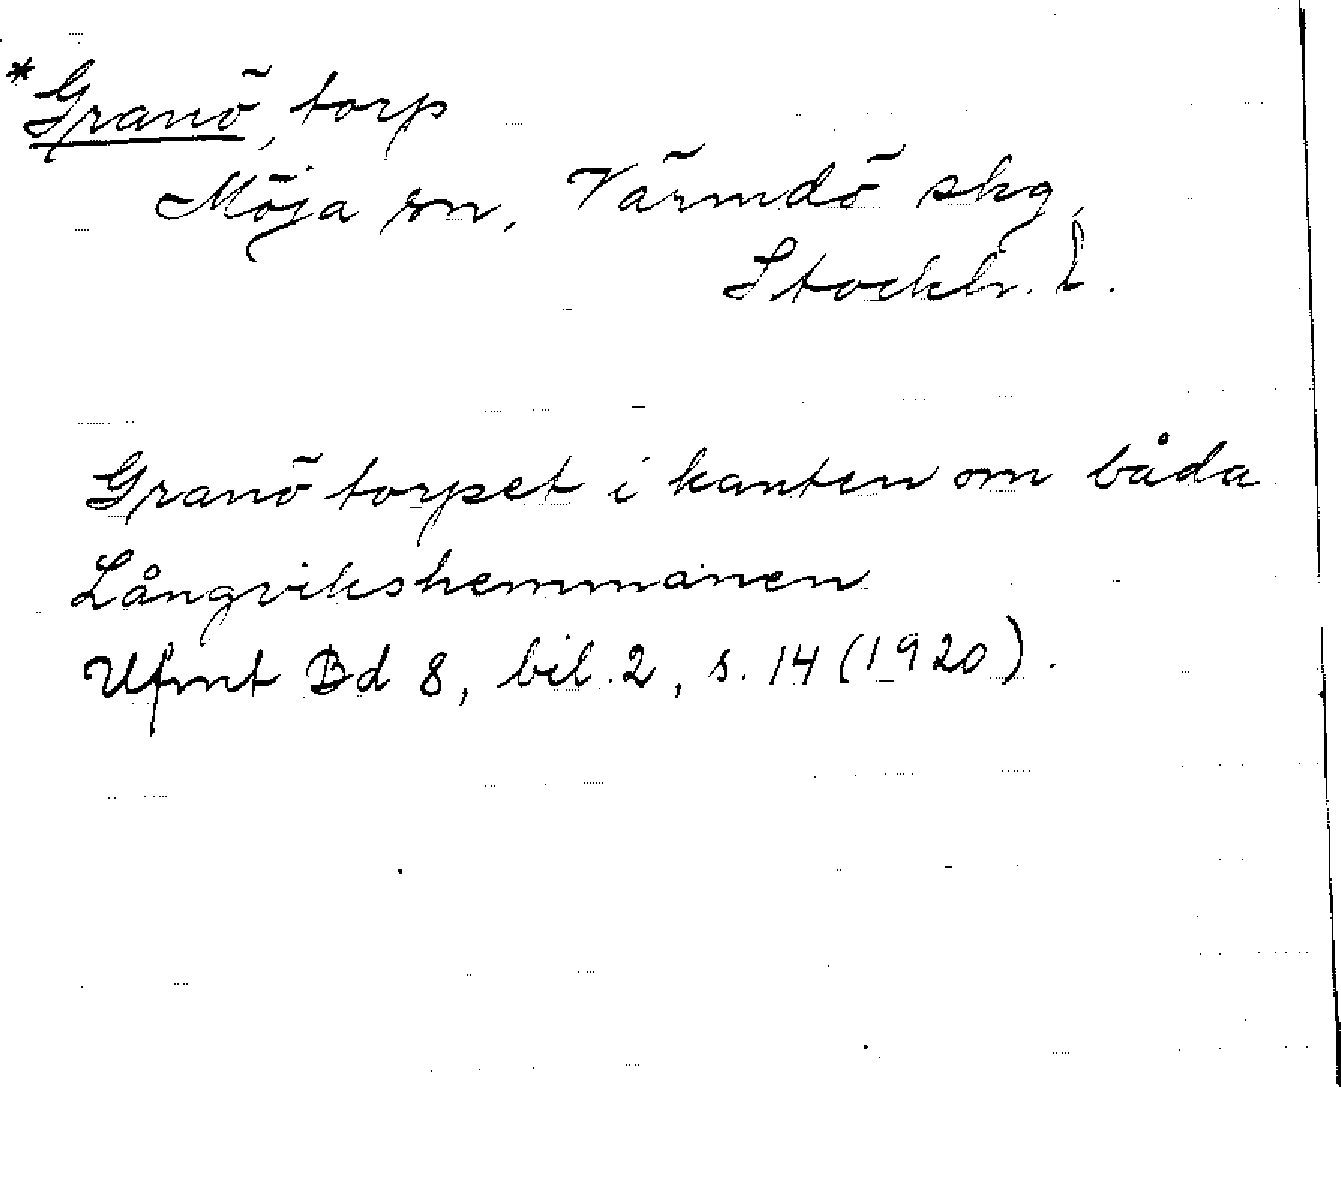 *Granö, torp
Möja sn, Värmdö skg,
Stockh. l.
Granö torpet i kanten om båda
Långvikshemmanen
Ufmt Bd 8, bil. 2, s. 14 (1920).